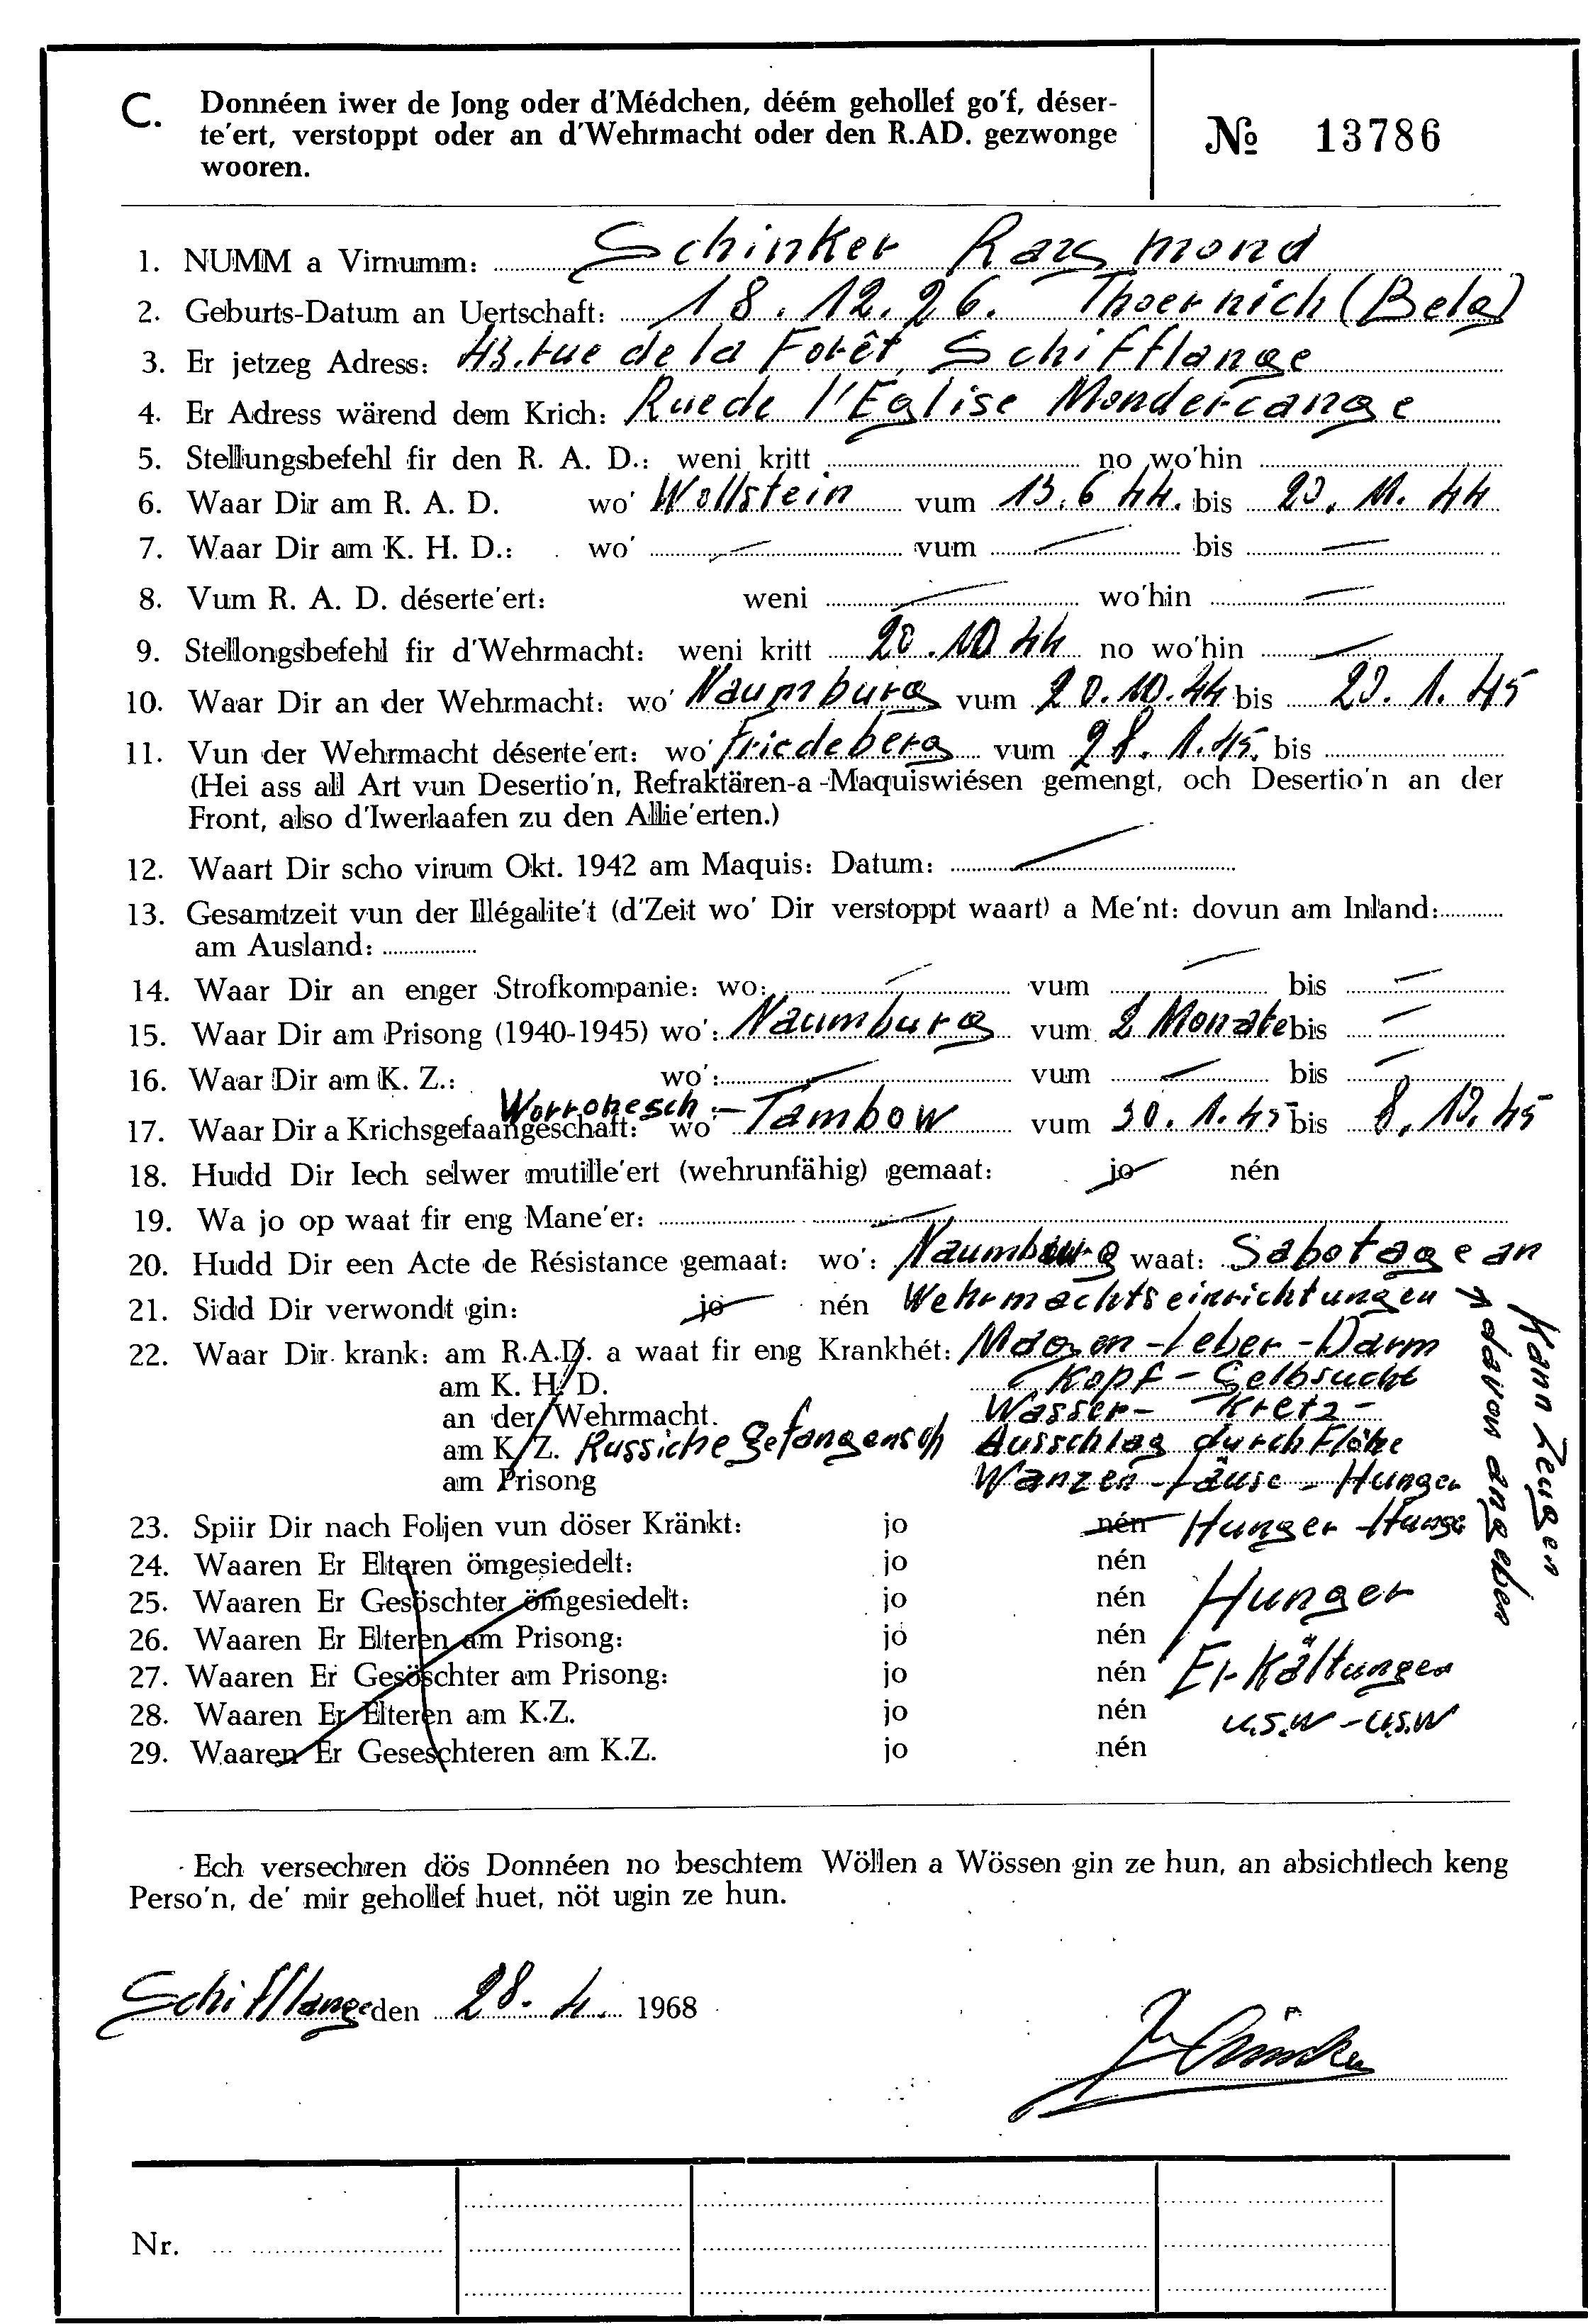 C. Donnéen iwer de Jong oder d'Médchen, déém gehollef go'f, déser-
te'ert, verstoppt oder an d'Wehrmacht oder den R.AD. gezwonge
wooren.
№ 13786
1. NUMM a Virnumm: Schinker Raymond
2. Geburts-Datum an Uertschaft: 18.12.26. Thoernich (Belg)
3. Er jetzeg Adress: 43. rue de la Forêt Schifflange
4. Er Adress wärend dem Krich: Rue de l'Eglise Mondercange
5. Stellungsbefehl fir den R. A. D.: weni kritt no wo'hin
6. Waar Dir am R. A. D. wo' Wollstein vum 13.6.44. bis 20. 11. 44
7. Waar Dir am K. H. D.: wo' — vum — bis —
8. Vum R. A. D. déserte'ert: weni — wo'hin —
9. Stellongsbefehl fir d'Wehrmacht: weni kritt 20.10 44 no wo'hin —
10. Waar Dir an der Wehrmacht: wo' Naumburg vum 20.10.44 bis 20. 1. 45
11. Vun der Wehrmacht déserte'ert: wo' Friedeberg vum 28. 1.45. bis
(Hei ass all Art vun Desertio'n, Refraktären-a-Maquiswiésen gemengt, och Desertio'n an der
Front, also d'Iwerlaafen zu den Allie'erten.)
12. Waart Dir scho virum Okt. 1942 am Maquis: Datum: —
13. Gesamtzeit vun der Illégalite't (d'Zeit wo' Dir verstoppt waart) a Me'nt: dovun am Inland:
am Ausland:
14. Waar Dir an enger Strofkompanie: wo: — vum — bis —
15. Waar Dir am Prisong (1940-1945) wo': Naumburg vum 2 Monate bis —
16. Waar Dir am K. Z.: wo': — vum — bis —
Worronesch :—
17. Waar Dir a Krichsgefaangeschaft: wo' Tambow vum 30. 1. 45 bis 8. 10. 45
18. Hudd Dir Iech selwer mutille'ert (wehrunfähig) gemaat: jo nén
19. Wa jo op waat fir eng Mane'er: —
20. Hudd Dir een Acte de Résistance gemaat: wo': Naumburg waat: Sabotage an
21. Sidd Dir verwondt gin: jo nén Wehrmachtseinrichtungen
Kann Zeugen
davon angeben
22. Waar Dir krank: am R.A.D. a waat fir eng Krankhét: Magen - Leber - Darm
am K. H. D. Kopf - Gelbsucht
an der Wehrmacht. Wasser - Kretz -
am K. Z. Russiche Gefangensch Ausschlag durch Flöhe
am Prisong Wanzen - Läuse - Hunger
23. Spiir Dir nach Foljen vun döser Kränkt: jo nén Hunger - Hunge
24. Waaren Er Elteren ömgesiedelt: jo nén
25. Waaren Er Gesöschter ömgesiedelt: jo nén Hunger
26. Waaren Er Elteren am Prisong: jo nén
27. Waaren Er Gesöschter am Prisong: jo nén Erkältungen
28. Waaren Er Elteren am K.Z. jo nén u.s.w - u.s.w
29. Waaren Er Geseschteren am K.Z. jo nén
Ech versechren dös Donnéen no beschtem Wöllen a Wössen gin ze hun, an absichtlech keng
Perso'n, de' mir gehollef huet, nöt ugin ze hun.
Schifflange den 28. 4. 1968
Nr.